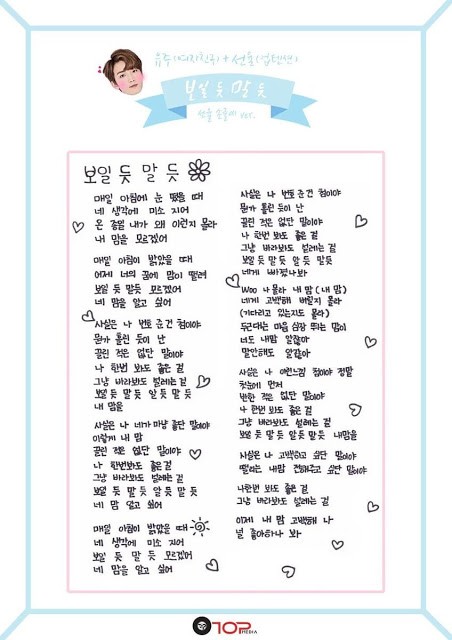 유주(여자친구) + 선율(업텐션)
보일 듯 말 듯
선율 손글씨 ver.
보일 듯 말 듯
매일 아침에 눈 떴을 때
네 생각에 미소 지어
온 종일 내가 왜 이런지 몰라
내 맘을 모르겠어
매일 아침이 밝았을 때
어제 너의 꿈에 맘이 떨려
보일 듯 말듯 모르겠어
네 맘을 알고 싶어
사실은 나 번호 준건 첨이야
뭔가 홀린 듯이 난
끌린 적은 없단 말이야
나 한번 봐도 좋은 걸
그냥 바라봐도 설레는 걸
보일 듯 말 듯 알 듯 말 듯
내 맘을
사실은 나 네가 마냥 좋단 말이야
이렇게 내 맘
끌린 적은 없단 말이야
나 한번봐도 좋은 걸
그냥 바라봐도 설레는 걸
보일 듯 말 듯 알 듯 말 듯
네 맘 알고 싶어
매일 아침이 밝았을 때
네 생각에 미소 지어
보일 듯 말 듯 모르겠어
네 맘을 알고 싶어
사실은 나 번호 준건 첨이야
뭔가 홀린 듯이 난
끌린 적은 없단 말이야
나 한번 봐도 좋은 걸
그냥 바라봐도 설레는 걸
보일 듯 말 듯 알 듯 말 듯
네게 빠졌나봐
Woo 나몰라 내 맘 (내 맘)
네게 고백해 버릴지 몰라
(기다리고 있는지도 몰라)
두근대는 마음 심장 뛰는 맘이
너도 내맘 알잖아
말안해도 알잖아
사실은 나 이런느낌 첨이야 정말
첫눈에 먼저
반한 적은 없단 말이야
나 한번 봐도 좋은 걸
그냥 바라봐도 설레는 걸
보일 듯 말 듯 알 듯 말 듯 내맘을
사실은 나 고백하고 싶단 말이야
떨리는 내맘 전해주고 싶단 말이야
나한번 봐도 좋은 걸
그냥 바라봐도 설레는 걸
이제 내 맘 고백해 나
널 좋아하나 봐
TOP MEDIA